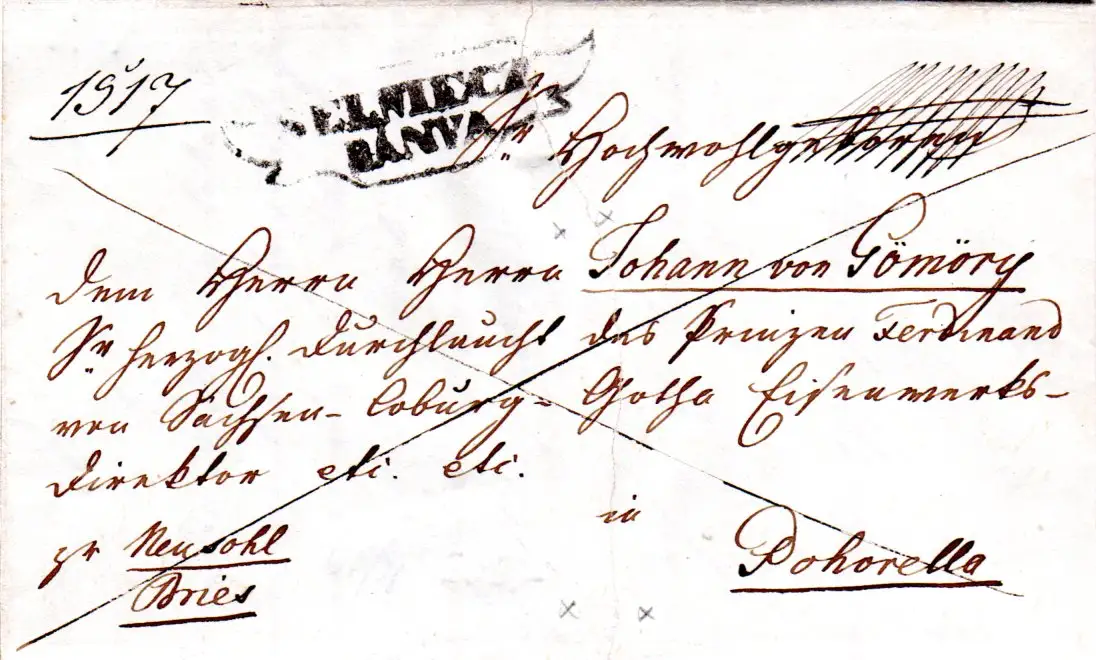 1917
SELMECZ
BÁNYA
Sr Hochwohlgeboren
dem Herrn Herrn Johann von Gömöry
Sr herzogl. Durchlaucht des Prinzen Ferdinand
von Sachsen-Coburg-Gotha Eisenwerks-
Direktor etc. etc.
in
pr Neusohl
Bries
Pohorella